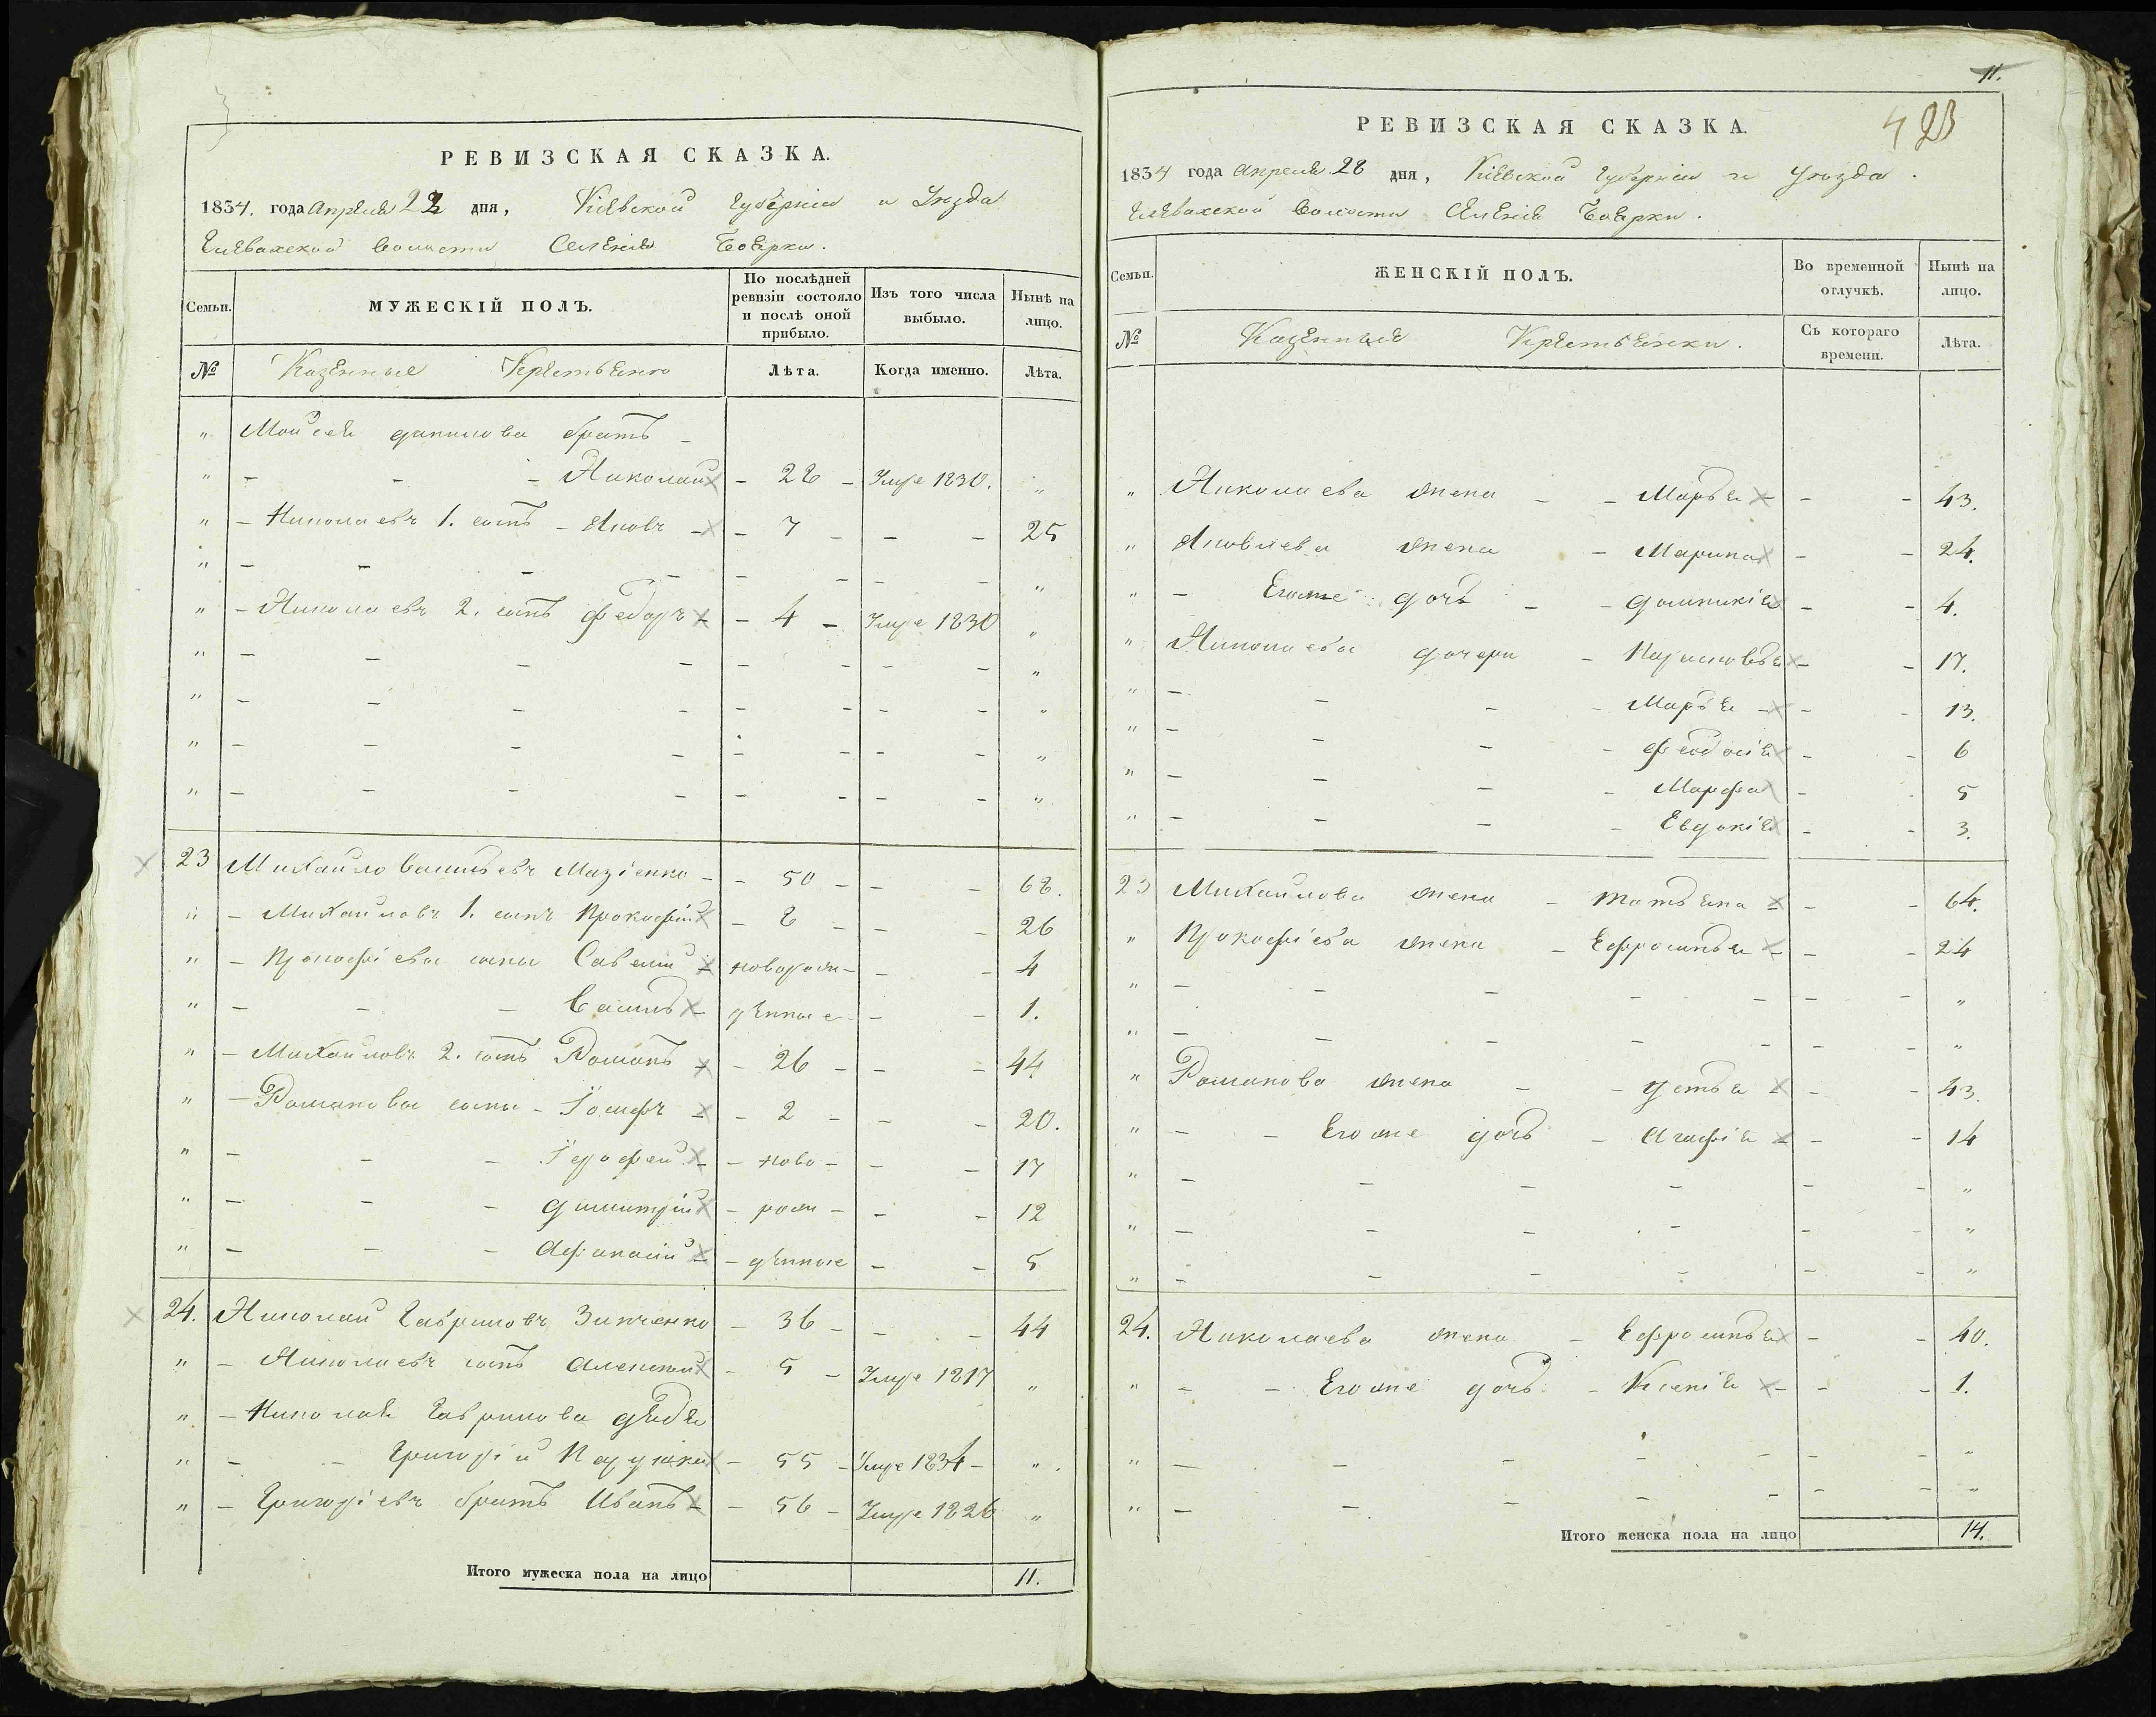 РЕВИЗСКАЯ СКАЗКА.
1834. года Апреля 28 дня, Кіевской губерніи и Уезда
волости Селенія Боярки.
Семьи.
МУЖЕСКІЙ ПОЛЪ.
По послѣдней ревизіи состояло и послѣ оной прибыло.
Изъ того числа выбыло.
Нынѣ на лицо.
№ Казенные Крестьяне Лѣта. Когда именно. Лѣта.
" Моисея Данилова братъ -
" - - - Николай - 28 - Умре 1830. "
" - Николаевъ 1. сынъ - Яковъ - - 7 - - - 25
" - - - - - - - - "
" - Николаевъ 2. сынъ Федоръ - - 4 - Умре 1830 "
" - - - - - - - - "
" - - - - - - - - "
" - - - - - - - - "
" - - - - - - - - "
23 Михайло Васильевъ Мизіенко - - 50 - - - 68.
" - Михайловъ 1. сынъ Прокофій - 8 - - - 26
" - Прокофіева сыны Савелій - новорож- - - 4
" - - - Василь - денные - - - 1.
" - Михайловъ 2. сынъ Романъ - 26 - - - 44
" - Романова сыны - Іосифъ - - 2 - - - 20.
" - - - Іерофей - - ново - - - 17
" - - - Димитрій - рож - - - 12
" - - - Афанасій - - денные - - 5
24. Николай Гавриловъ Зинченко - 36 - - - 44
" - Николаевъ сынъ Алексей - 5 - Умре 1817 "
" - Николая Гаврилова дядя
" - - Григорій - 55 - Умре 1834 - "
" - Григоріевъ братъ Иванъ - - 56 - Умре 1826 "
Итого мужеска пола на лицо 11.
11.
423
РЕВИЗСКАЯ СКАЗКА.
1834 года Апреля 28 дня, Кіевской губерніи и Уезда.
волости Селенія Боярки.
Семьи.
ЖЕНСКІЙ ПОЛЪ.
Во временной отлучкѣ.
Нынѣ на лицо.
№ Казенные Крестьянки. Съ котораго времени. Лѣта.
" Николаева жена - - Марья - - - 43.
" Яковлева жена - Марина - - 24.
" - Егоже дочь - - Домникія - - 4.
" Николаева дочери - - - 17.
" - - - - Марья - - - 13.
" - - - - Феодосія - - 6
" - - - - Марфа - - 5
" - - - - Евдокія - - 3.
23 Михайлова жена - Татьяна - - - 64.
" Прокофіева жена - Ефросинья - - - 24
" - - - - - - - "
" - - - - - - - "
" Романова жена - - Устья - - 43.
" - - Егоже дочь - Агафія - - - 14
" - - - - - - "
" - - - - - - "
" - - - - - - "
24. Николаева жена - Ефросинья - - 40.
" - - Егоже дочь - Ксенія - - - 1.
" - - - - - - - "
" - - - - - - - "
Итого женска пола на лицо 14.